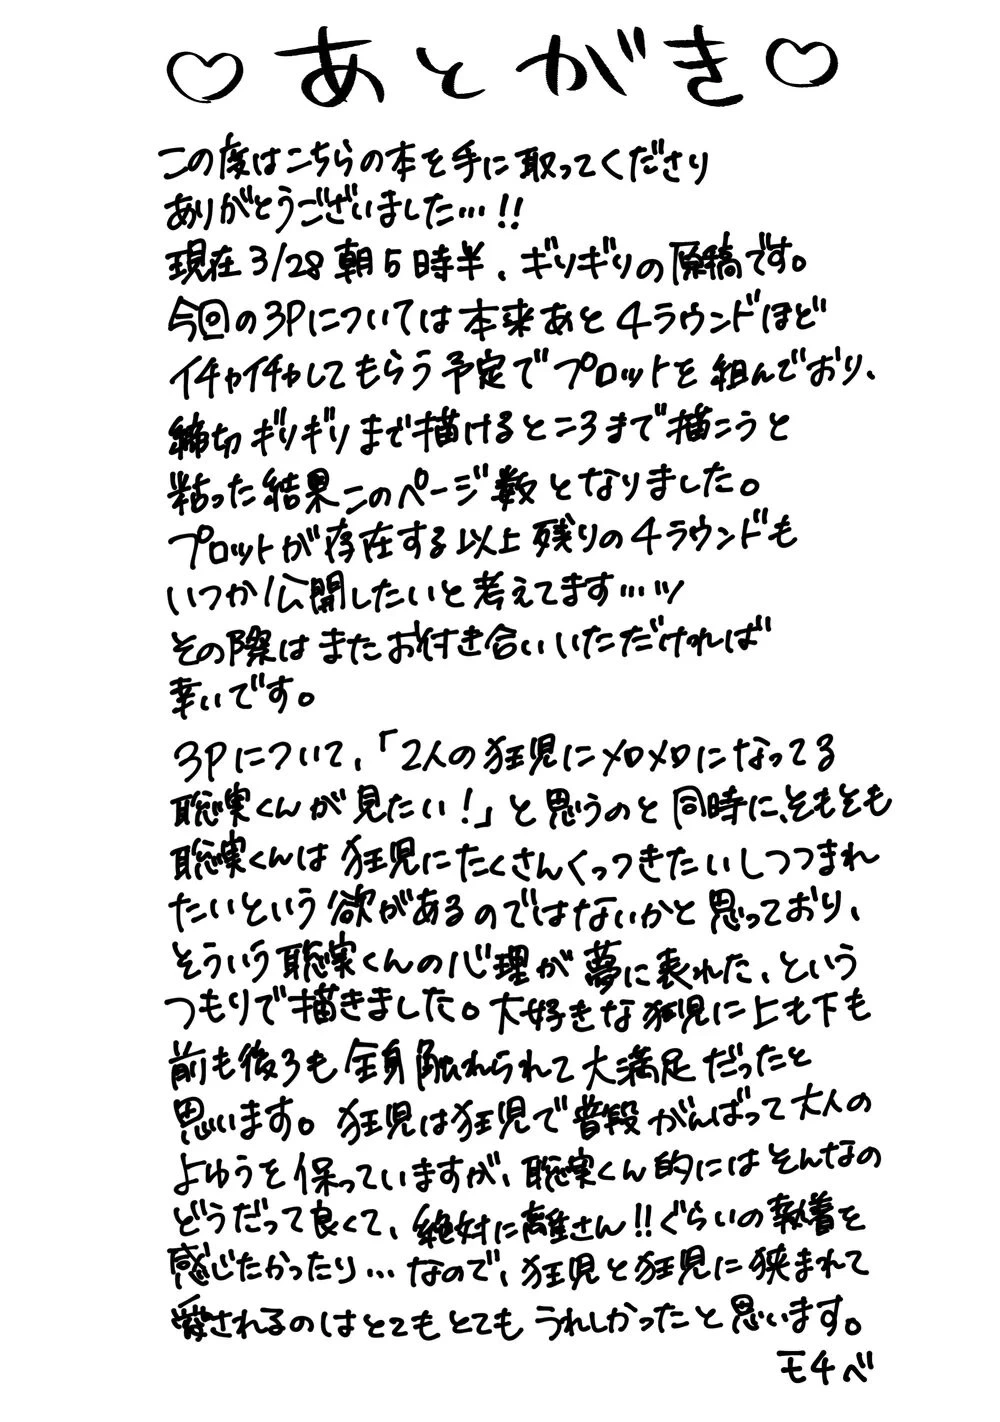 ♡あとがき♡
この度はこちらの本を手に取ってくださり
ありがとうございました…!!
現在3/28朝5時半、ギリギリの原稿です。
今回の3Pについては本来あと4ラウンドほど
イチャイチャしてもらう予定でプロットを組んでおり、
締切ギリギリまで描けるところまで描こうと
粘った結果このページ数となりました。
プロットが存在する以上残りの4ラウンドも
いつか公開したいと考えてます…ッ
その際はまたお付き合いいただければ
幸いです。
3Pについて、「2人の狂児にメロメロになってる
聡実くんが見たい!」と思うのと同時に、そもそも
聡実くんは狂児にたくさんくっつきたいしつつまれ
たいという欲があるのではないかと思っており、
そういう聡実くんの心理が夢に表れた、という
つもりで描きました。大好きな狂児に上も下も
前も後ろも全身触れられて大満足だったと
思います。狂児は狂児で普段がんばって大人の
よゆうを保っていますが、聡実くん的にはそんなの
どうだって良くて、絶対に離さん!!ぐらいの執着を
感じたかったり…なので、狂児と狂児に挟まれて
愛されるのはとてもとてもうれしかったと思います。
モチベ